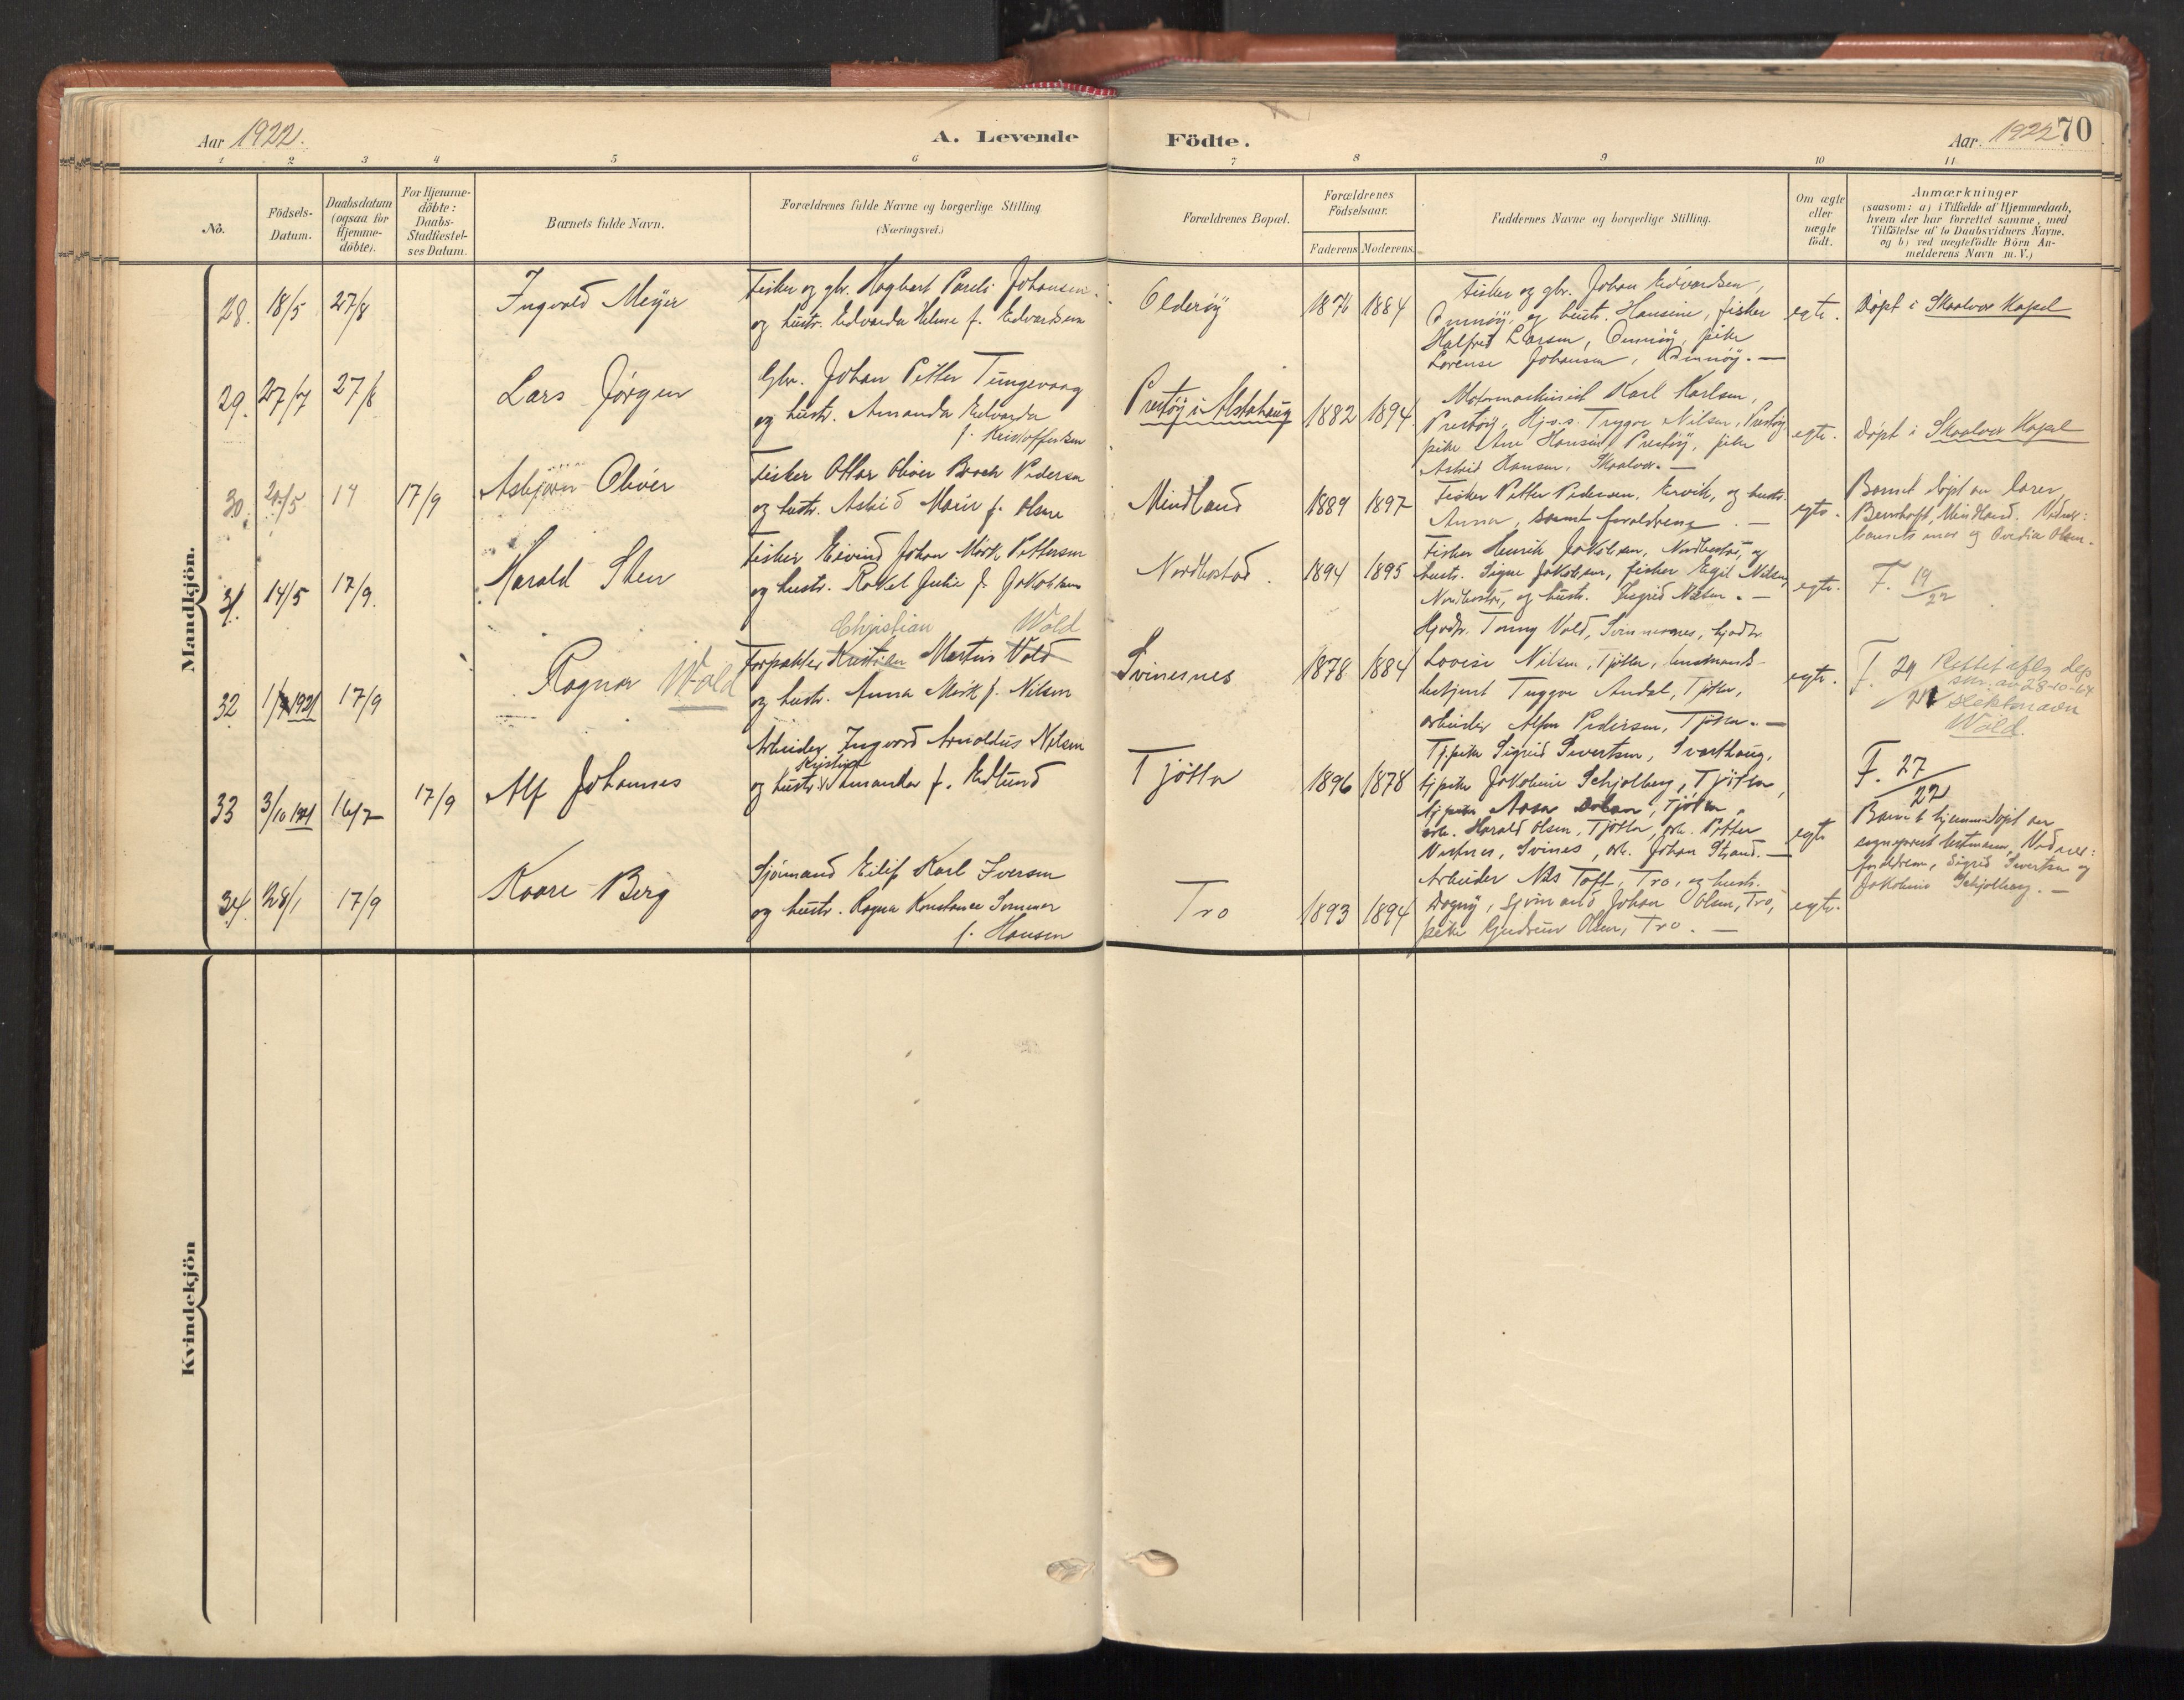 Aar 1922.
A. Levende
Födte.
Aar. 1922
70
1 2 3 4 5 6 7 8 9 10 11
No.
Födsels-
Datum.
Daabsdatum
(ogsaa for
Hjemme-
döbte).
For Hjemme-
döbte:
Daabs-
Stadfæstel-
ses Datum.
Barnets fulde Navn.
Forældrenes fulde Navne og borgerlige Stilling
(Næringsvei.)
Forældrenes Bopæl.
Forældrenes
Födselsaar.
Faderens
Moderens.
Faddernes Navne og borgerlige Stilling.
Om ægte
eller
uægte
födt.
Anmærkninger
(saasom: a) i Tilfælde af Hjemmedaab,
hvem der har forrettet samme, med
Tilföielse af to Daabsvidners Navne.
og b) ved uægtefödte Börn An-
melderens Navn m. V.)
Mandkjön.
28. 18/5 27/8
Ingvald Meyer
Fisker og gbr. Hagbart Pareli Johansen
og hustr. Edvarda Helene f. Edvardsen
Olderöy
1876 1884
Fisker og gbr. Johan Edvardsen,
og hustr. Hansine, fisker
Halfred Larsen, pike
Lorense Johansen,
egte.
Döpt i Skaalvær Kapel
29. 27/7 27/8
Lars Jörgen
Gbr. Johan Petter Tungevaag
og hustr. Amanda Edvarda
f. Kristoffersen
Prestöy i Alstahaug
1882 1894
Motormaskinist Karl Karlsen,
Prestöy, Hjv.s. Trygve Nilsen, Prestöy
pike Ane Hansen Prestöy, pike
Astrid Hansen, Skaalvær. —
egte.
Döpt i Skaalvær Kapel
30. 20/5 14 17/9
Asbjørn Oliver
Fisker Ottar Oliver Broch Pedersen
og hustr. Astrid Marie f. Olsen
Mindland
1889 1897
Fisker Petter Pedersen, Ervik, og hustr.
Anna, samt forældrene. —
egte.
Barnet döpt av lærer
Bernhoft, Mindland. Vidner:
barnets mor og Ovidia Olsen.
31. 14/5 17/9.
Harald Sten
Fisker Eivind Johan Mörk Pettersen
og hustr. Rakel Julie f. Jakobsen
Nordbostad.
1894 1895
Fisker Henrik Jakobsen, Nordbostad, og
hustr. Signe Jakobsen, fisker Egil Nilsen,
Nordbostad, og hustr. Ingrid Nilsen. —
egte.
F. 19/22
32 1/ 1921 17/9
Ragnar Wold
Christian Wold
Forpakter Kristian Martin Vold
og hustr. Anna Mörk f. Nilsen
Svinesnes
1878 1884
Hjvdtr. Tomy Vold, Svinesnes, hjvdtr.
Lovise Nilsen, Tjötta,
betjent Trygve Andal, Tjötta,
arbeider Alfon Pedersen, Tjötta. —
egte.
F. 24/21
Rettet iflg. deps
skr. av 28-10-64
slektsnavn
Wold.
33 3/10 1921 16/7 17/9
Alf Johannes
Arbeider Ingvard Arnoldus Nilsen
Kristine
og hustr. Amanda f. Edlund
Tjötta
1896 1878
Tj.pike Sigrid Sivertsen, Svarthaug,
tjpike Jakobine Schjolberg, Tjötta,
tjpike Aasa Tjötta,
arb. Harald Olsen, Tjötta, arb. Petter
Svines, arb. Johan Strand. —
egte
F. 27/22
Barnet hjemmedöpt av
sogneprest Vidner:
foreldrene, Sigrid Sivertsen og
Jakobine Schjolberg. —
34. 28/1 17/9
Kaare Berg
Sjömand Eilif Karl Iversen
og hustr. Ragna Konstance Sommer
f. Hansen
Tro
1893 1894
Arbeider Nils Toft, Tro, og hustr.
Dagny, sjömand Johan Olsen, Tro,
pike Gudrun Olsen, Tro. —
egte.
Kvindekjön